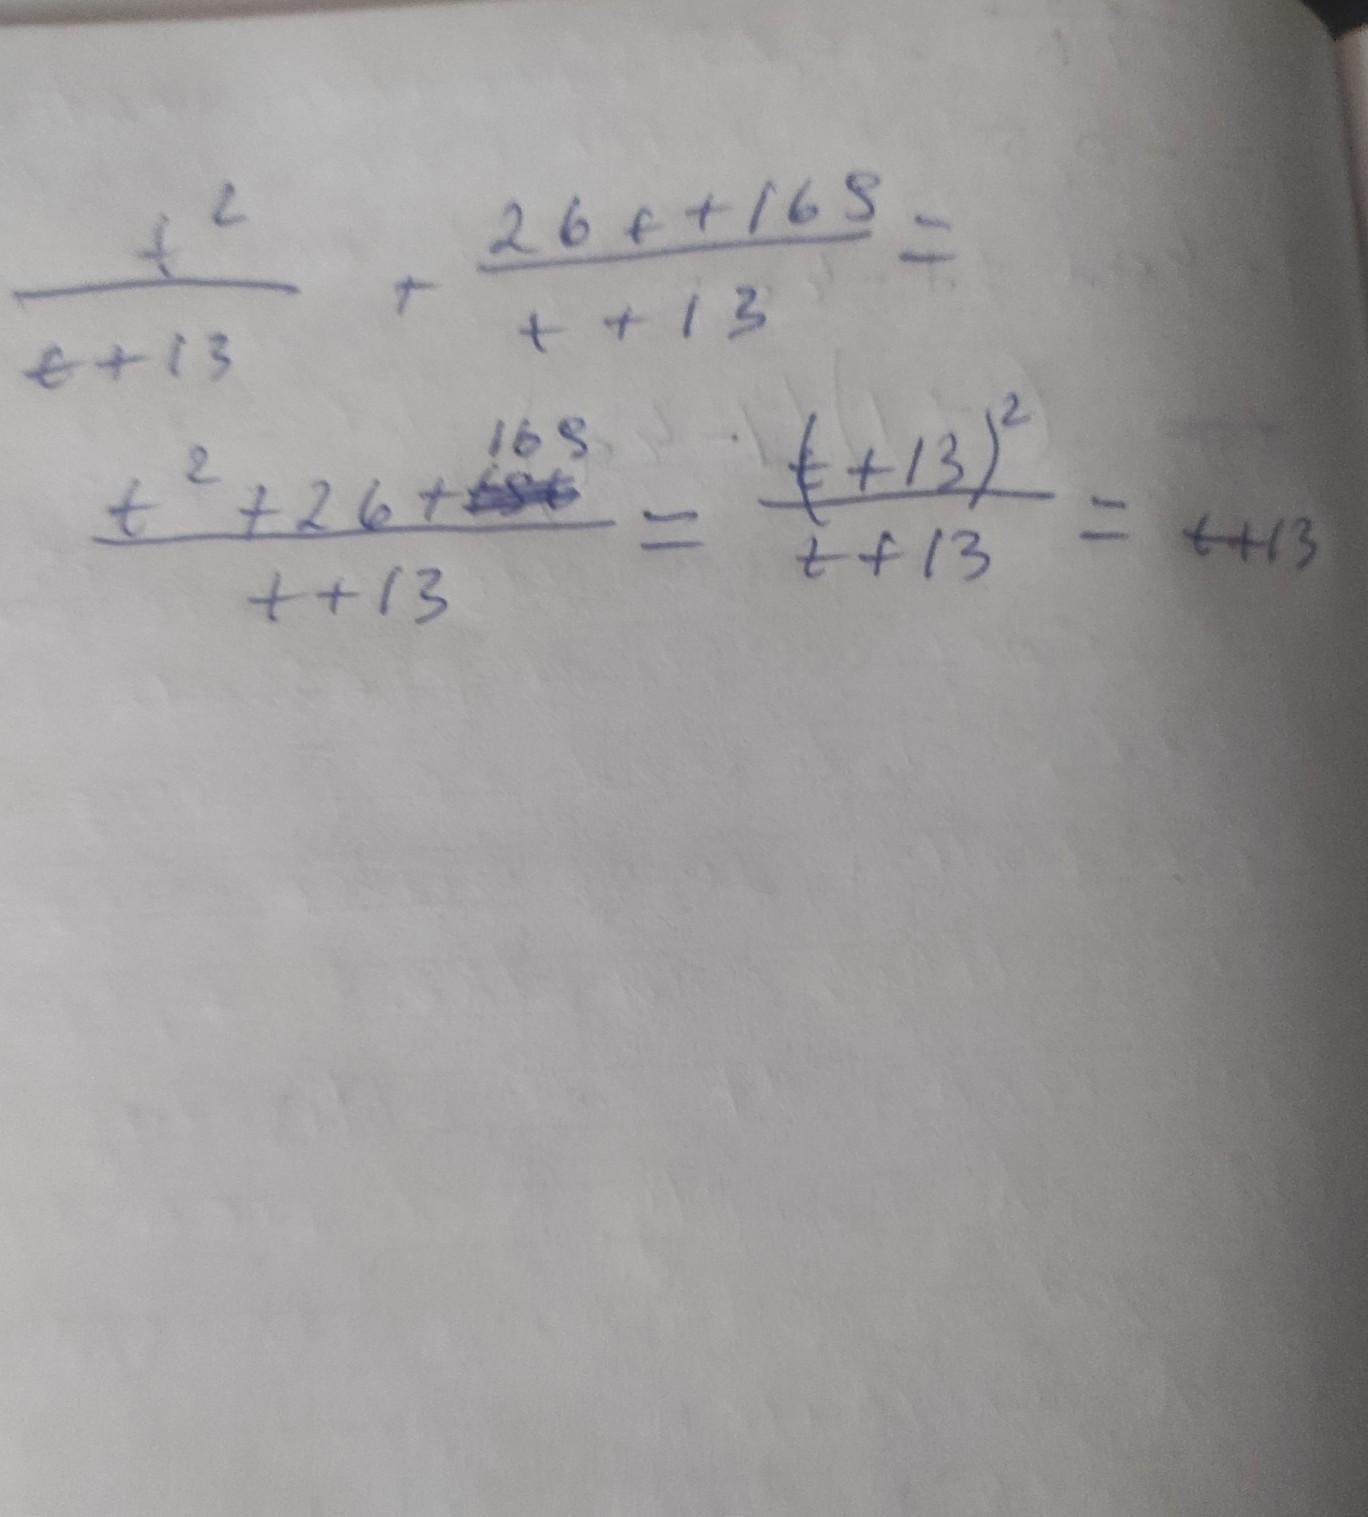 t² / (t+13) + (26t+169) / (t+13) =
(t²+26+169) / (t+13) = (t+13)² / (t+13) = t+13